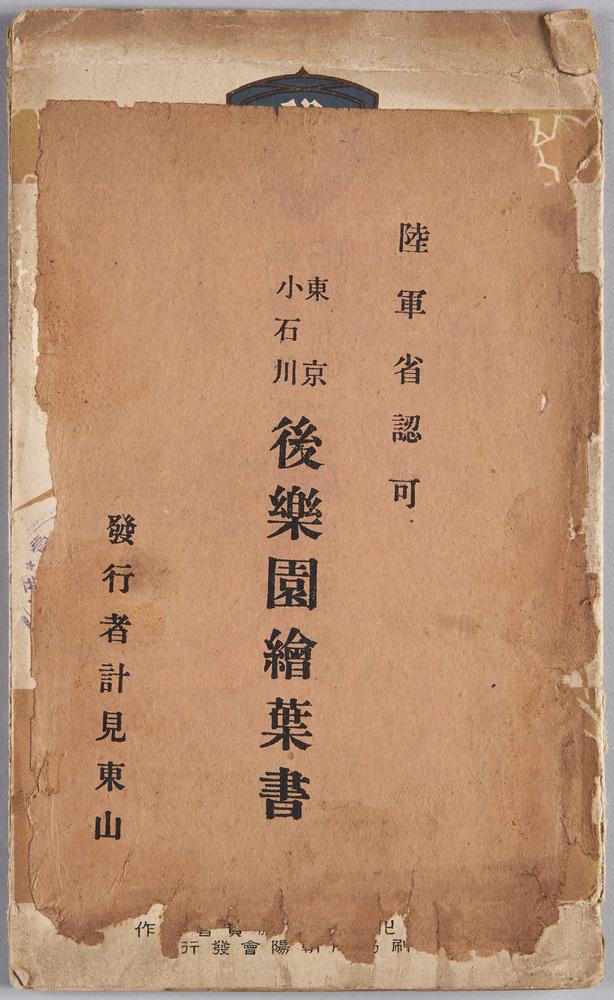 陸軍省認可
東京
小石川
後樂園繪葉書
發行者計見東山
作
陽會發行